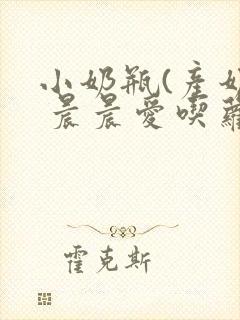 小奶瓶(産奶
晨晨愛喫蘿
霍克斯